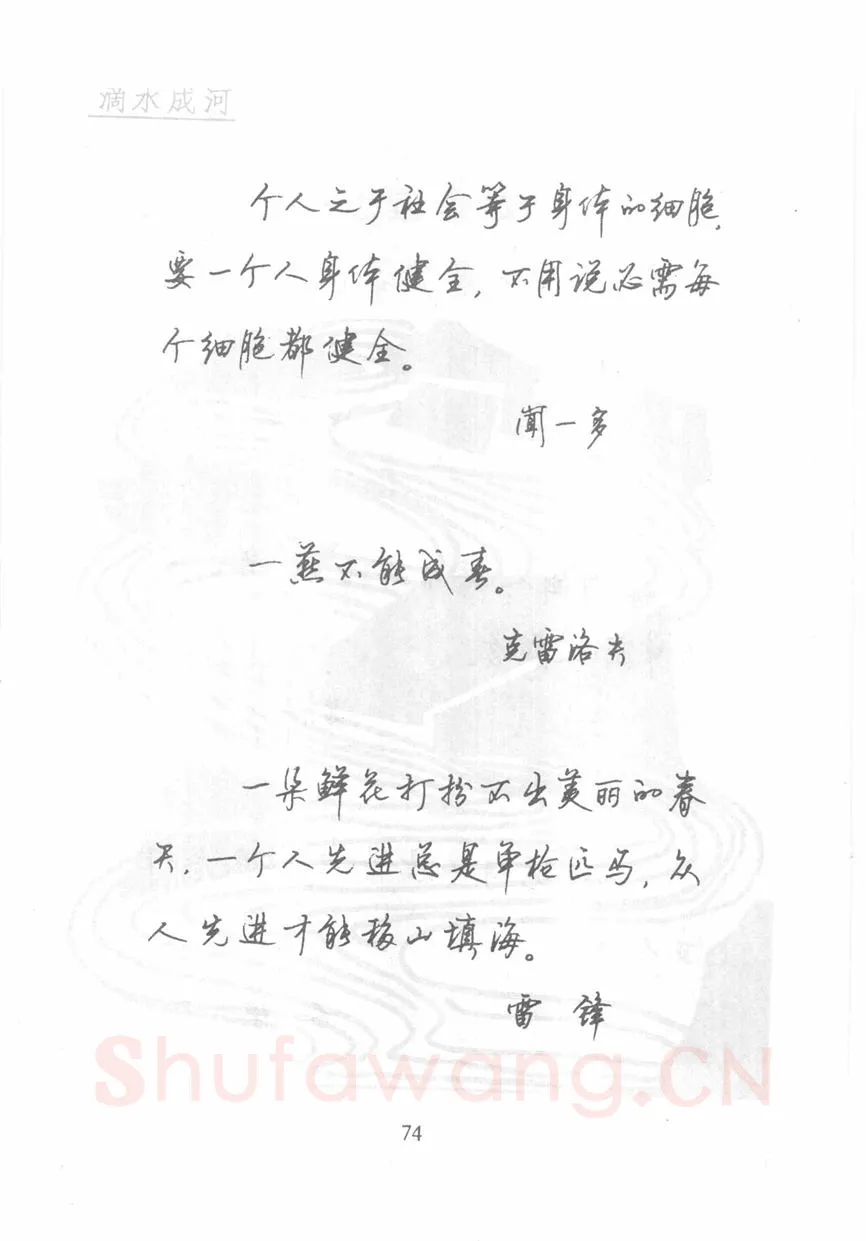 滴水成河
个人之于社会等于身体的细胞,
要一个人身体健全, 不用说必需每
个细胞都健全。
闻一多
一燕不能成春。
克雷洛夫
一朵鲜花打扮不出美丽的春
天, 一个人先进总是单枪匹马, 众
人先进才能移山填海。
雷 锋
Shufawang.CN
74